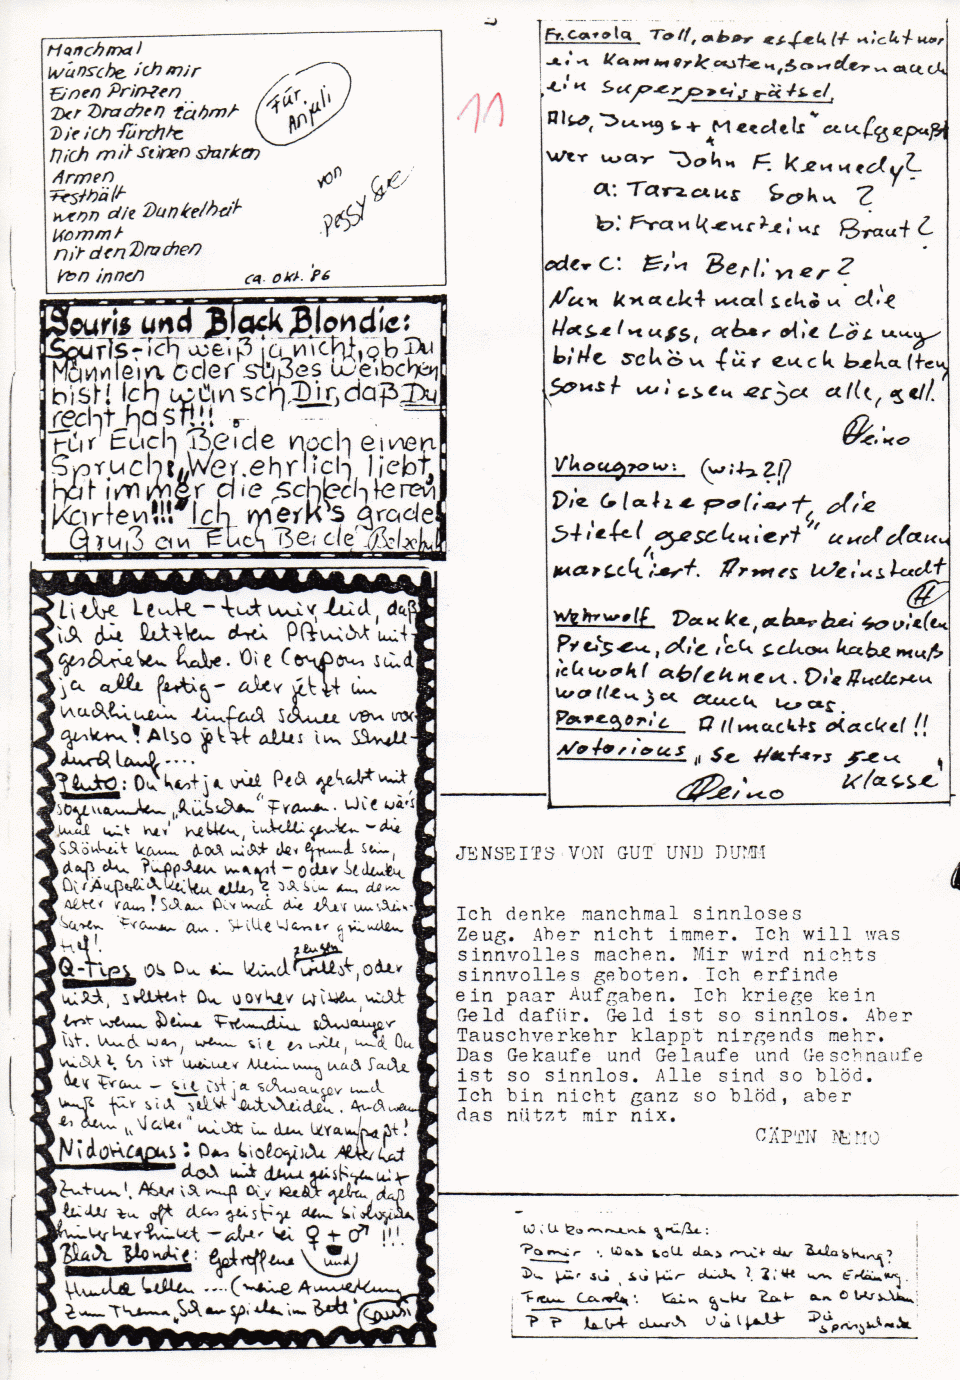 Manchmal
wünsche ich mir
Einen Prinzen
Der Drachen zähmt
Die ich fürchte
Mich mit seinen starken
Armen
Festhält
wenn die Dunkelheit
Kommt
mit den Drachen
von innen
Für
Anjuli
von
Peggy Sue
ca. Okt. '86
11
Souris und Black Blondie:
Souris - ich weiß ja nicht, ob Du
Männlein oder süßes Weibchen
bist! Ich wünsch Dir, daß Du
recht hast!!!
Für Euch Beide noch einen
Spruch: „Wer ehrlich liebt,
hat immer die schlechteren
Karten!!!" Ich merk's grade!
Gruß an Euch Beide
Liebe Leute - tut mir leid, daß
ich die letzten drei PP nicht mit-
geschrieben habe. Die Coupons sind
ja alle fertig - aber jetzt im
nachhinein einfach Schnee von vor-
gestern! Also jetzt alles im Schnell-
durchlauf....
Pluto: Du hast ja viel Pech gehabt mit
sogenannten „hübschen" Frauen. Wie wär's
mal mit 'ner netten, intelligenten - die
Schönheit kann doch nicht der Grund sein,
daß du Püppchen magst - oder bedeuten
Dir Äußerlichkeiten alles? Ich bin aus dem
Alter raus! Schau Dir mal die eher unschein-
baren Frauen an. Stille Wasser gründen
tief!
Q-Tips Ob Du ein Kind zeugen willst, oder
nicht, solltest Du vorher wissen, nicht
erst wenn Deine Freundin schwanger
ist. Und was, wenn sie es will, und Du
nicht? Es ist meiner Meinung nach Sache
der Frau - sie ist ja schwanger und
muß für sich selbst entscheiden. Auch wenn
es dem „Vater" nicht in den Kram paßt!
Nidoricapus: Das biologische Alter hat
doch mit dem geistigen nix
Zutun! Aber ich muß Dir Recht geben, daß
leider zu oft das geistige dem biologischen
hinterherhinkt - aber bei ♀ + ♂ !!!
und
Black Blondie: Getroffene
Hunde bellen .... (meine Anmerkung
zum Thema „Schauspielen im Bett"
Fr. Carola Toll, aber es fehlt nicht nur
ein Kammerkasten, sondern auch
ein Superpreisrätsel.
Also, Jungs + Meedels" aufgepaßt
wer war John F. Kennedy?
a: Tarzans Sohn?
b: Frankensteins Braut?
oder C: Ein Berliner?
Nun knackt mal schön die
Haselnuss, aber die Lösung
bitte schön für euch behalten,
sonst wissen es ja alle, gell.
Heino
Vhougrow: (witz?!)
Die Glatze poliert, die
Stiefel „geschniert" und dann
marschiert. Armes Weinstadt
H
Wehrwolf Danke, aber bei sovielen
Preisen, die ich schon habe muß
ich wohl ablehnen. Die Anderen
wollen ja auch was.
Paregoric Allmachtsdackel!!
Notorious „Se Haters 5en
Klasse"
Heino
JENSEITS VON GUT UND DUMM
Ich denke manchmal sinnloses
Zeug. Aber nicht immer. Ich will was
sinnvolles machen. Mir wird nichts
sinnvolles geboten. Ich erfinde
ein paar Aufgaben. Ich kriege kein
Geld dafür. Geld ist so sinnlos. Aber
Tauschverkehr klappt nirgends mehr.
Das Gekaufe und Gelaufe und Geschnaufe
ist so sinnlos. Alle sind so blöd.
Ich bin nicht ganz so blöd, aber
das nützt mir nix.
CÄPTN NEMO
Willkommensgrüße:
Pamir : Was soll das mit der Belastung?
Du für sie, sie für dich? Bitte um Erklärung.
Frau Carola: Kein guter Rat an
PP lebt durch Vielfalt Die